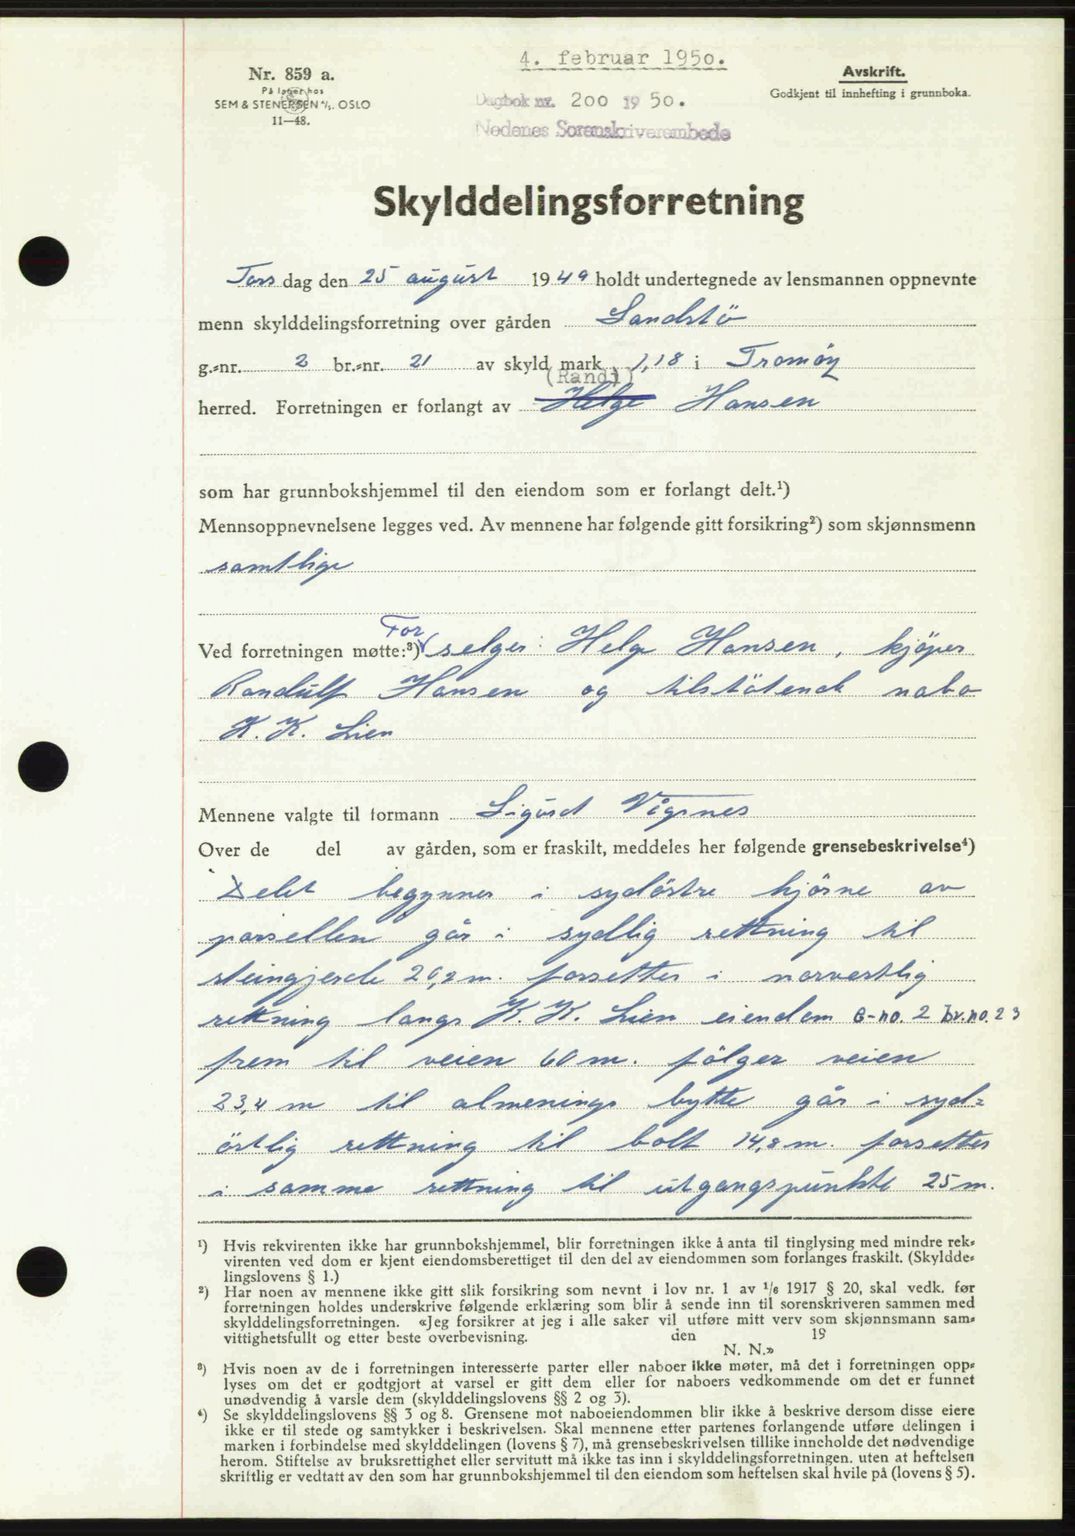 4. februar 1950.
Nr. 859 a.
På lager hos
SEM & STENERSEN A/S. OSLO
11—48.
Avskrift.
Godkjent til innhefting i grunnboka.
Dagbok nr. 200 19 50.
Nedenes Sorenskriverembede
Skylddelingsforretning
Torsdag den 25 august 1949 holdt undertegnede av lensmannen oppnevnte
menn skylddelingsforretning over gården Sandstö
g.-nr. 2 br.-nr. 21 av skyld mark 1,18 i Tromöy
(Randi)
herred. Forretningen er forlangt av Helge Hansen
som har grunnbokshjemmel til den eiendom som er forlangt delt.¹)
Mennsoppnevnelsene legges ved. Av mennene har følgende gitt forsikring²) som skjønnsmenn
samtlige
For
Ved forretningen møtte:³) selger: Helge Hansen, kjöper
Randulf Hansen og tilstötende nabo
K. K. Lien
Mennene valgte til formann Sigurd Vågsnes
Over de del av gården, som er fraskilt, meddeles her følgende grensebeskrivelse⁴)
Delet begynner i sydöstre hjörne av
parsellen går i sydlig rettning til
steingjerde 20,2 m. forsetter i norvestlig
rettning langs K. K. Lien eiendom G-no. 2 br.no. 23
frem til veien 60 m. fölger veien
23,4 m til almenings bytte går i syd-
östlig rettning til bolt 14,8 m. forsetter
i samme rettning til utgangspunkte 25 m.
¹) Hvis rekvirenten ikke har grunnbokshjemmel, blir forretningen ikke å anta til tinglysing med mindre rek-
virenten ved dom er kjent eiendomsberettiget til den del av eiendommen som forlanges fraskilt. (Skyldde-
lingslovens § 1.)
²) Har noen av mennene ikke gitt slik forsikring som nevnt i lov nr. 1 av 1/6 1917 § 20, skal vedk. før
forretningen holdes underskrive følgende erklæring som blir å sende inn til sorenskriveren sammen med
skylddelingsforretningen. «Jeg forsikrer at jeg i alle saker vil utføre mitt verv som skjønnsmann sam-
vittighetsfullt og etter beste overbevisning. den 19
N. N.»
³) Hvis noen av de i forretningen interesserte parter eller naboer ikke møter, må det i forretningen opp-
lyses om det er godtgjort at varsel er gitt dem eller for naboers vedkommende om det er funnet
unødvendig å varsle dem (skylddelingslovens §§ 2 og 3).
⁴) Se skylddelingslovens §§ 3 og 8. Grensene mot naboeiendommen blir ikke å beskrive dersom disse eiere
ikke er til stede og samtykker i beskrivelsen. Skal mennene etter partenes forlangende utføre delingen i
marken i forbindelse med skylddelingen (lovens § 7), må grensebeskrivelsen tillike inneholde det nødvendige
herom. Stiftelse av bruksrettighet eller servitutt må ikke tas inn i skylddelingsforretningen. uten at heftelsen
skriftlig er vedtatt av den som har grunnbokshjemmel til den eiendom som heftelsen skal hvile på (lovens § 5).